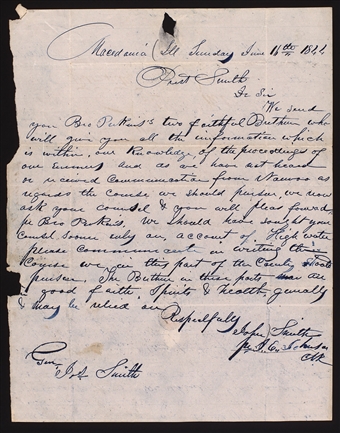 Macedonia Ill Sunday June 16th 1844
Prest Smith
Dr Sir
We send
you Bro Perkins's two faithful Brethren who
will give you all the information which
is within our knowledge, of the proceedings of
our enemies and as we have not heard
or received Communication from Nauvoo as
regards the Course we should pursue, we now
ask your counsel & you will pleas forward
pr Bro Perkins. We should have sought your
Counsel Some on account of High water
please Communicate in writing the
Course we in this part of the County
pursue. The Brethren in these parts are
in good faith, Spirits & health, genally
& may be relied on
Respectfully
John Smith
pr J. E. Johnson
Clk
Gen J. Smith